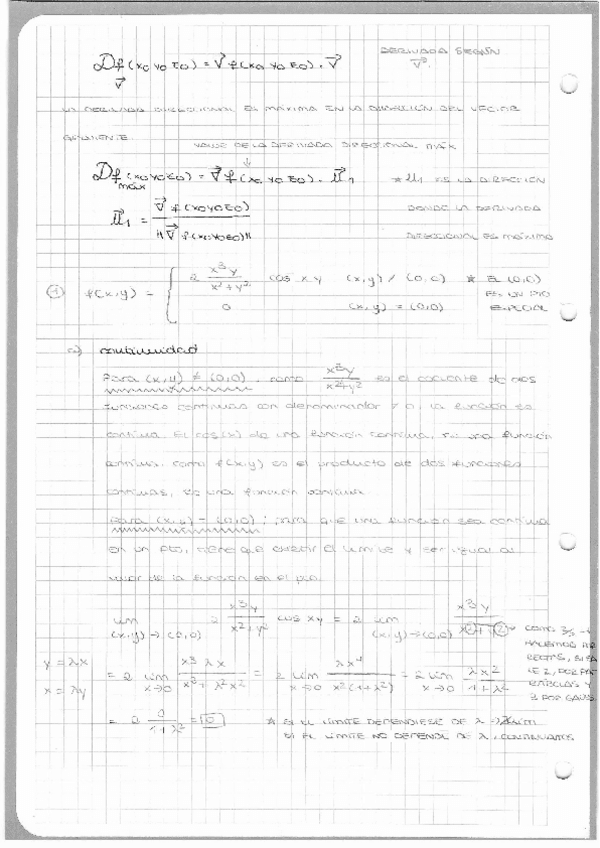 DERIVADA SEGÚN
Df(x₀ y₀ z₀) = ∇⃗ f(x₀ y₀ z₀) · v⃗
v⃗
LA DERIVADA DIRECCIONAL ES MÁXIMA EN LA DIRECCIÓN DEL VECTOR
GRADIENTE.
VALOR DE LA DERIVADA DIRECCIONAL MÁX
↓
Df(x₀ y₀ z₀) = ∇⃗ f(x₀ y₀ z₀) · u⃗₁ * u₁ ES LA DIRECCIÓN
máx
DONDE LA DERIVADA
DIRECCIONAL ES MÁXIMA
u⃗₁ = ∇⃗ f(x₀ y₀ z₀) / ‖∇⃗ f(x₀ y₀ z₀)‖
f(x,y) = { 2 x³y / x²+y² cos xy (x,y) ≠ (0,0) * EL (0,0)
ES UN PTO
0 (x,y) = (0,0) ESPECIAL
a) continuidad
Para (x,y) ≠ (0,0), como es el cociente de dos
funciones continuas con denominador ≠ 0, la función es
continua. El cos(x) de una función continua, una función
continua, como f(x,y) es el producto de dos funciones
continuas, es una función continua
Para (x,y) = (0,0); para que una función sea continua
en un pto, tiene que existir el límite y ser igual al
valor de la función en el pto.
lim 2 x³y / x²+y² cos xy = 2 lim x³y / x²+y²
(x,y)→(0,0) (x,y)→(0,0)
HACEMOS POR
RECTAS,
y = λx
x = λy
= 2 lim x³ λx / x²+λ²x² = 2 lim λx⁴ / x²(1+λ²) = 2 lim λx² / 1+λ²
x→0 x→0 x→0
= 2 0 / 1+λ² = 0 * SI EL LÍMITE DEPENDIESE DE λ → ∄ lim
SI EL LÍMITE NO DEPENDE DE λ, CONTINUAMOS